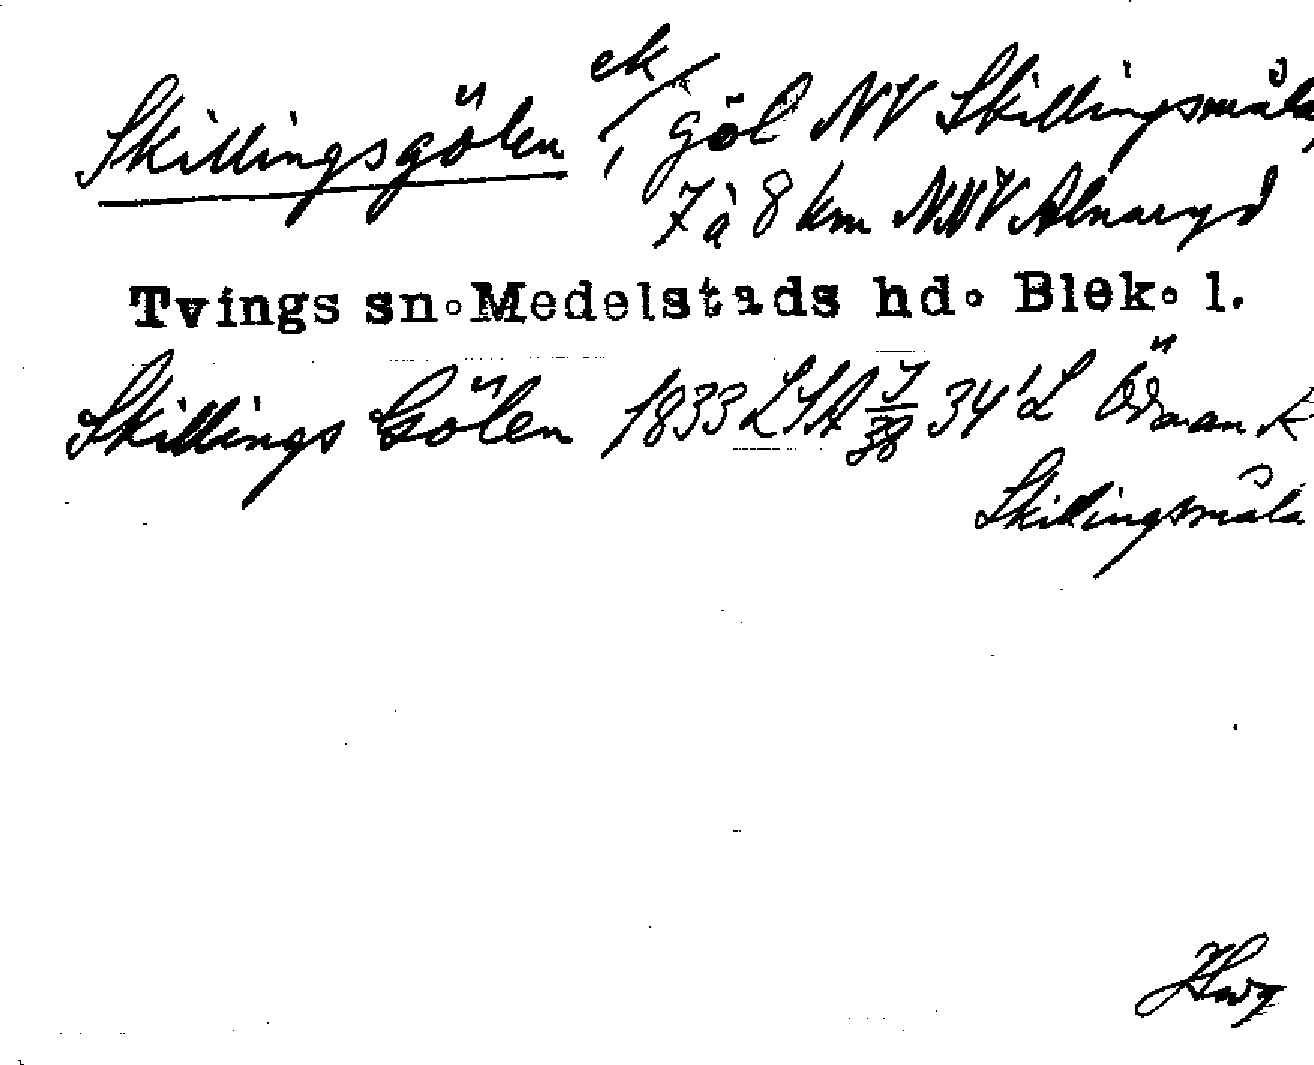 Skillingsgölen ek / göl NV Skillingsmåla,
7 à 8 km NNV Alnaryd
Tvings sn. Medelstads hd. Blek. l.
Skillings Gölen 1833 LSA 34 L Ödmark
Skillingsmåla